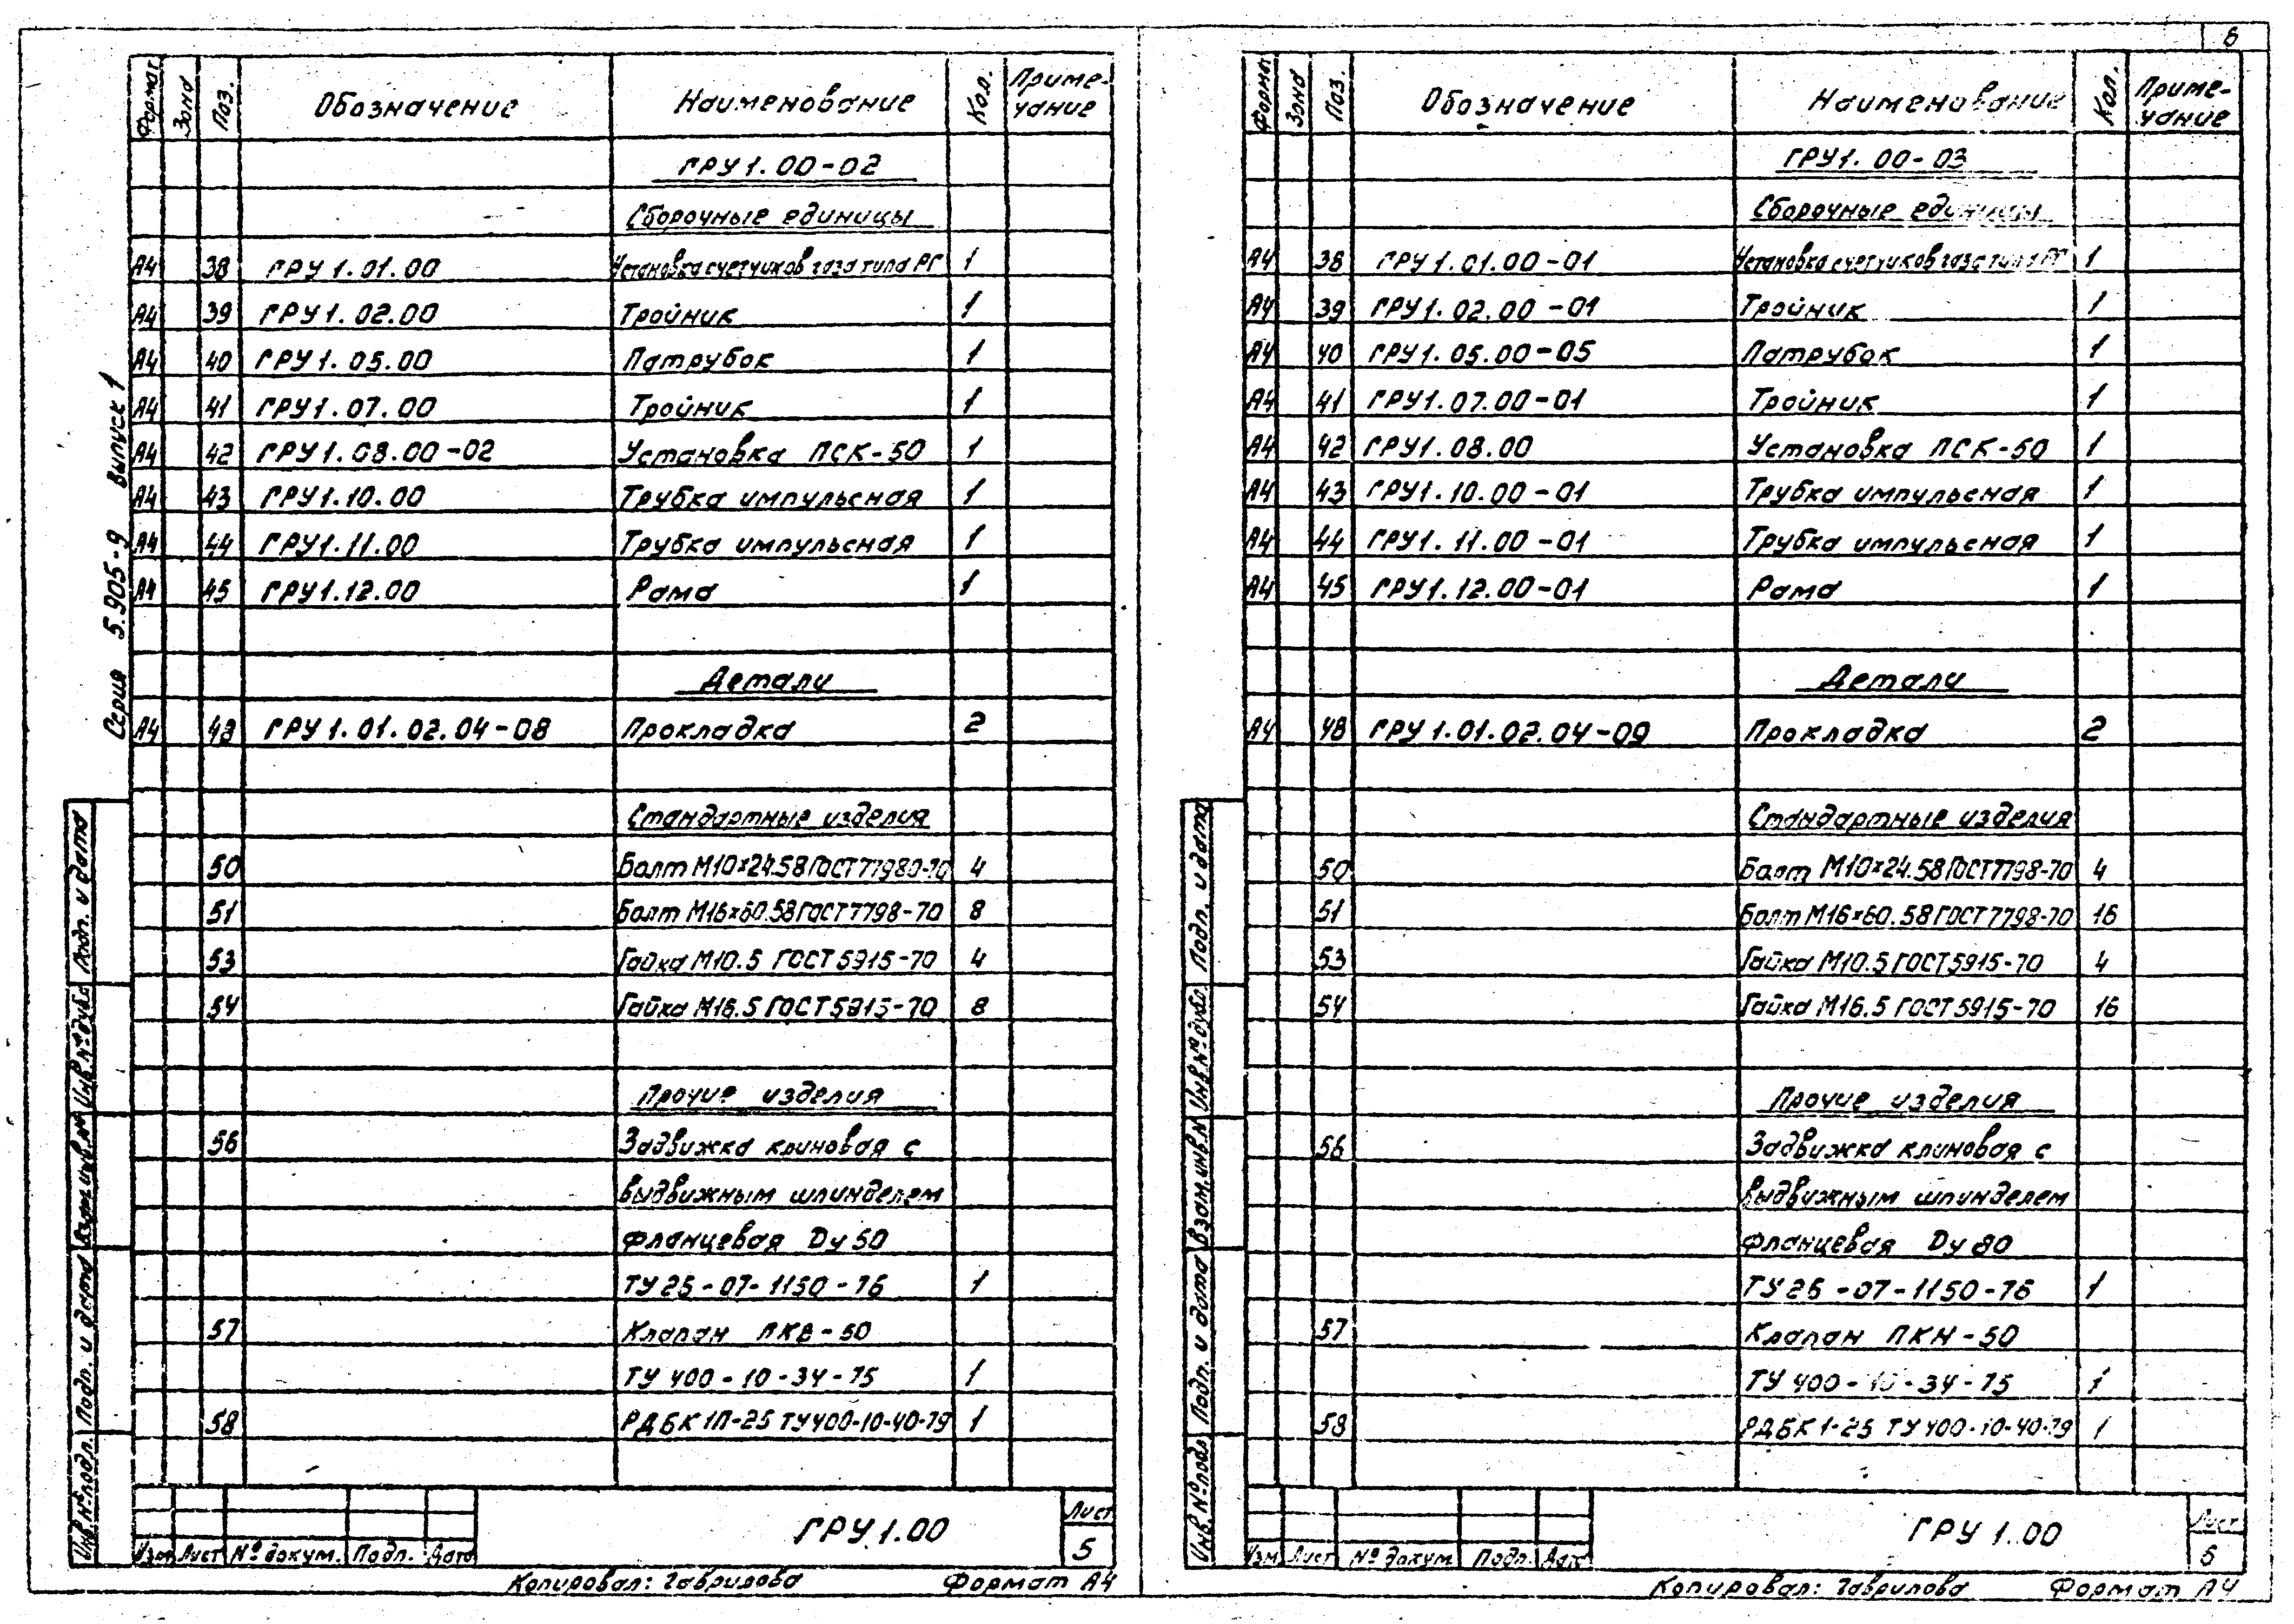 6
Серия 5.905-9 выпуск 1
Формат Зона Поз. Обозначение Наименование Кол. Приме-
чание
ГРУ 1.00-02
Сборочные единицы
А4 38 ГРУ 1.01.00 Установка счетчиков газа типа РГ 1
А4 39 ГРУ 1.02.00 Тройник 1
А4 40 ГРУ 1.05.00 Патрубок 1
А4 41 ГРУ 1.07.00 Тройник 1
А4 42 ГРУ 1.08.00-02 Установка ПСК-50 1
А4 43 ГРУ 1.10.00 Трубка импульсная 1
А4 44 ГРУ 1.11.00 Трубка импульсная 1
А4 45 ГРУ 1.12.00 Рама 1
Детали
А4 48 ГРУ 1.01.02.04-08 Прокладка 2
Стандартные изделия
50 Болт М10×24.58 ГОСТ 77980-70 4
51 Болт М16×60.58 ГОСТ 7798-70 8
53 Гайка М10.5 ГОСТ 5915-70 4
54 Гайка М16.5 ГОСТ 5915-70 8
Прочие изделия
56 Задвижка клиновая с
выдвижным шпинделем
фланцевая Dу 50
ТУ 26-07-1150-76 1
57 Клапан ПКВ-50
ТУ 400-10-34-75 1
58 РДБК 1П-25 ТУ 400-10-40-79 1
Инв.№подл. Подп. и дата Взам.инв.№ Инв.№дубл. Подп. и дата
ГРУ 1.00
Лист
5
Изм Лист № докум. Подп. Дата
Копировал: Гаврилова Формат А4
Формат Зона Поз. Обозначение Наименование Кол. Приме-
чание
ГРУ 1.00-03
Сборочные единицы
А4 38 ГРУ 1.01.00-01 Установка счетчиков газа типа РГ 1
А4 39 ГРУ 1.02.00-01 Тройник 1
А4 40 ГРУ 1.05.00-05 Патрубок 1
А4 41 ГРУ 1.07.00-01 Тройник 1
А4 42 ГРУ 1.08.00 Установка ПСК-50 1
А4 43 ГРУ 1.10.00-01 Трубка импульсная 1
А4 44 ГРУ 1.11.00-01 Трубка импульсная 1
А4 45 ГРУ 1.12.00-01 Рама 1
Детали
А4 48 ГРУ 1.01.02.04-09 Прокладка 2
Стандартные изделия
50 Болт М10×24.58 ГОСТ 7798-70 4
51 Болт М16×60.58 ГОСТ 7798-70 16
53 Гайка М10.5 ГОСТ 5915-70 4
54 Гайка М16.5 ГОСТ 5915-70 16
Прочие изделия
56 Задвижка клиновая с
выдвижным шпинделем
фланцевая Dу 80
ТУ 26-07-1150-76 1
57 Клапан ПКН-50
ТУ 400-10-34-75 1
58 РДБК 1-25 ТУ 400-10-40-79 1
Инв.№подл. Подп. и дата Взам.инв.№ Инв.№дубл. Подп. и дата
ГРУ 1.00
Лист
6
Изм Лист № докум. Подп. Дата
Копировал: Гаврилова Формат А4